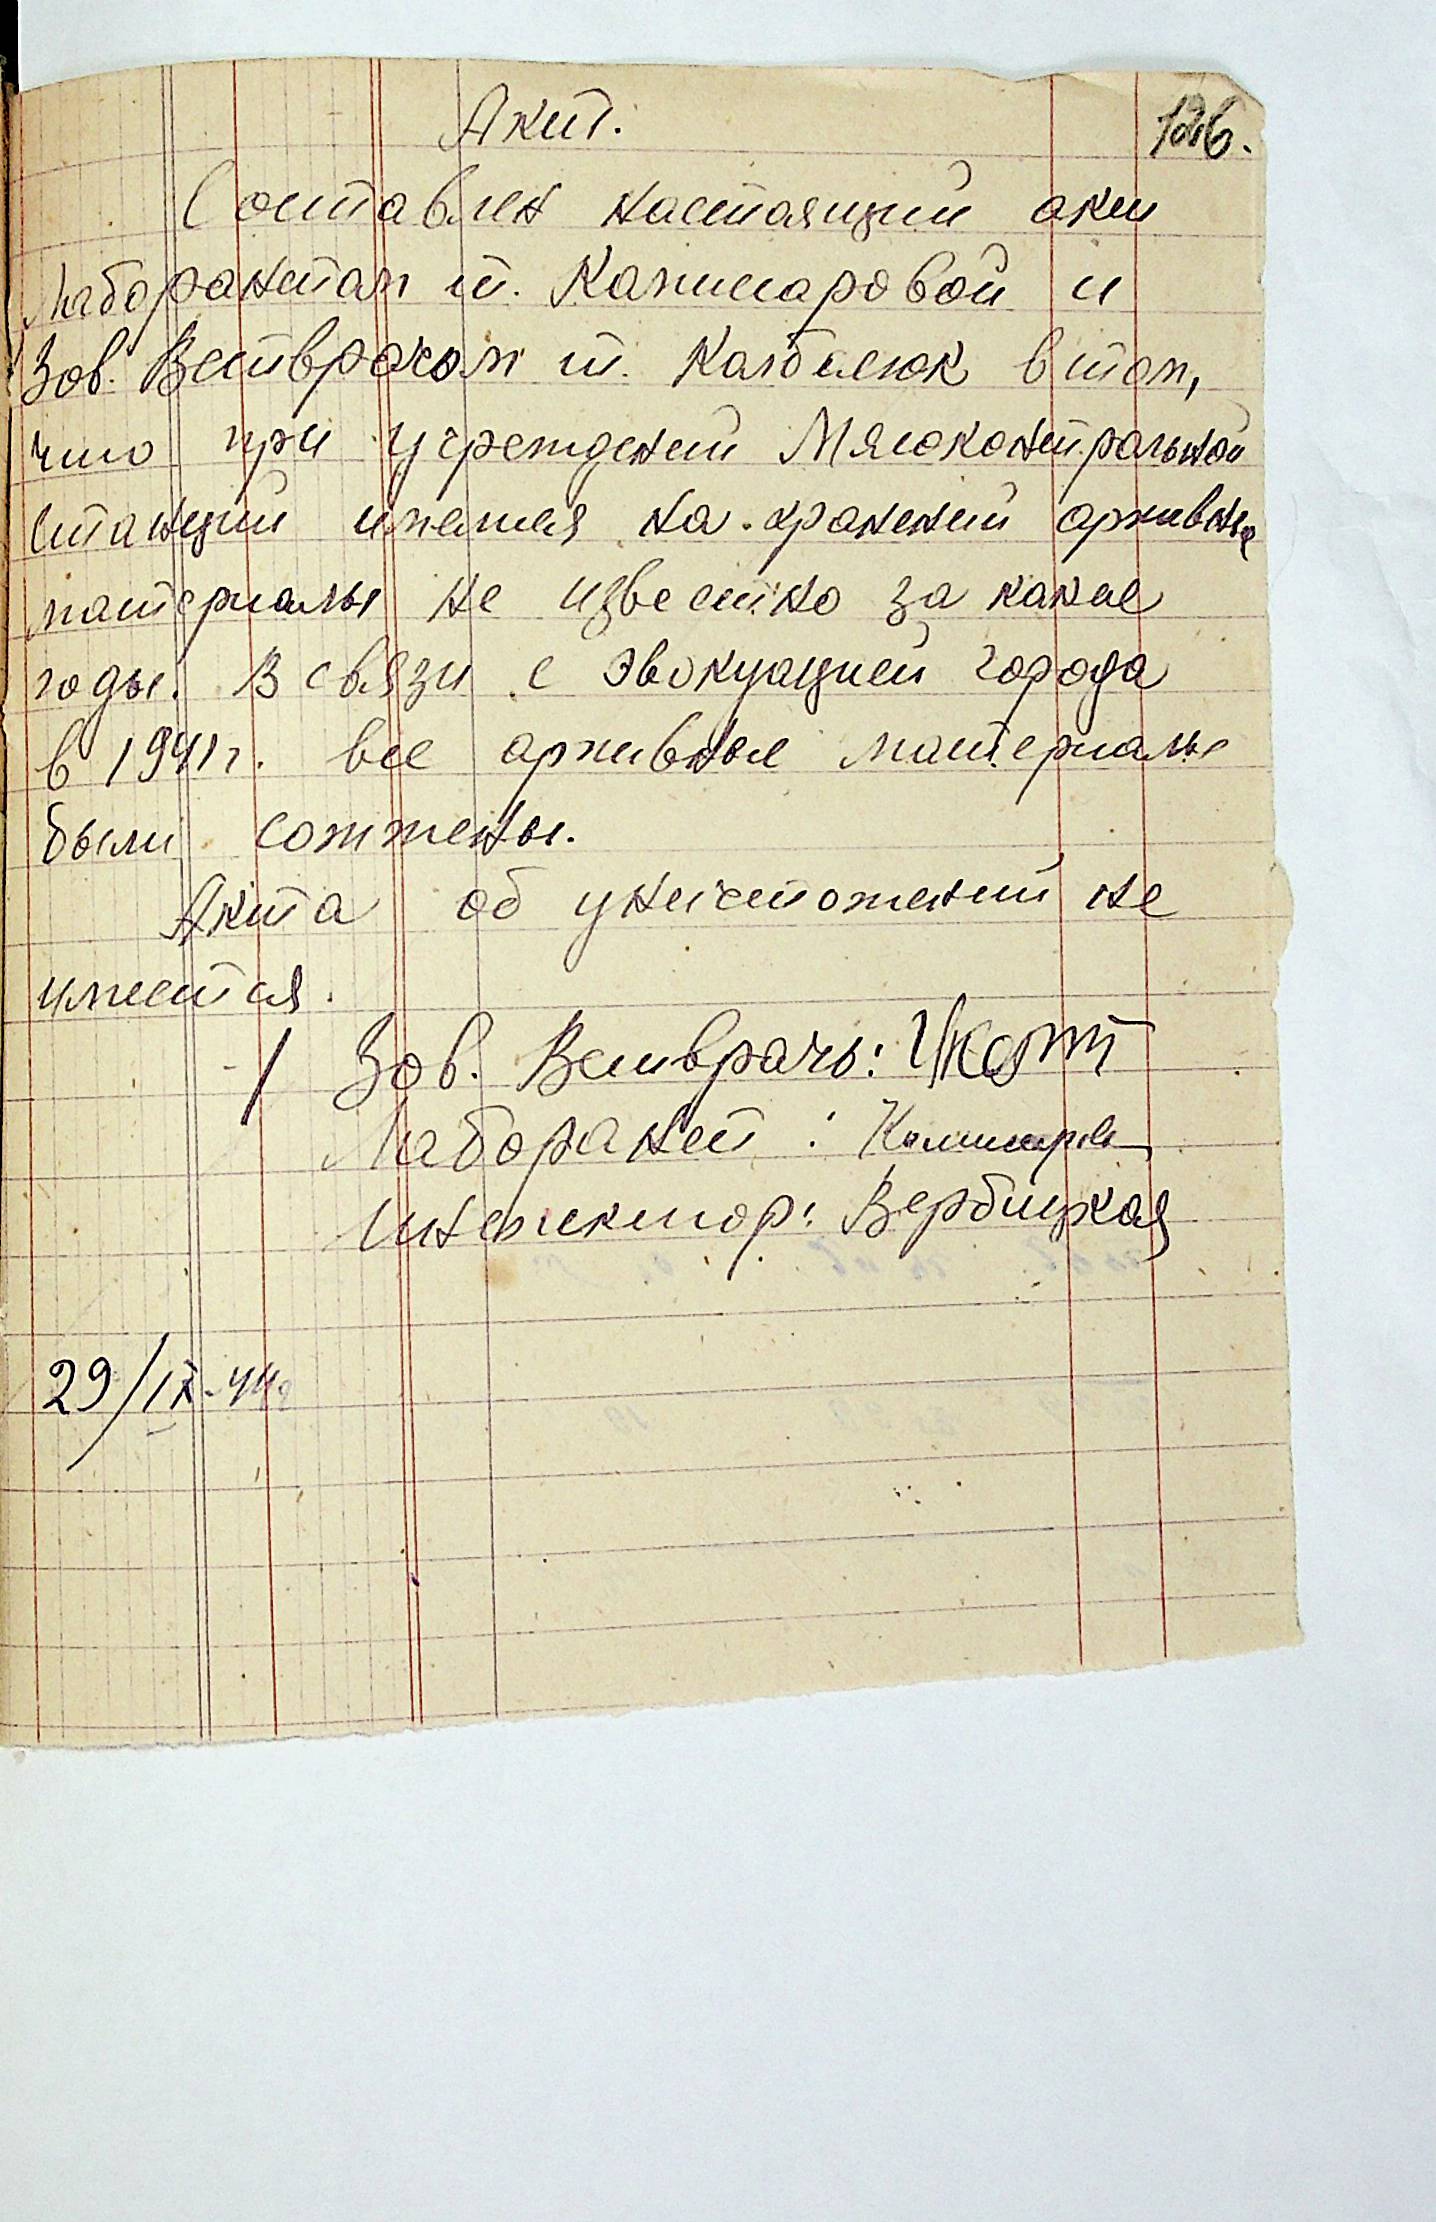 126.
Акт.
Составлен настоящий акт
Лаборантом т. Камисаровой и
Зав. Ветврачом т. в том,
что при учреждений Мясоконтрольной
станций имелися на хранений архивные
материалы не известно за какие
годы. В связи с эвакуацией города
в 1941 г. все архивные материалы
были сожжены.
Акта об уничтожений не
имеется.
Зав. Ветврачь:
Лаборант :
Инспектор: Вербицкая
29/IX-44г